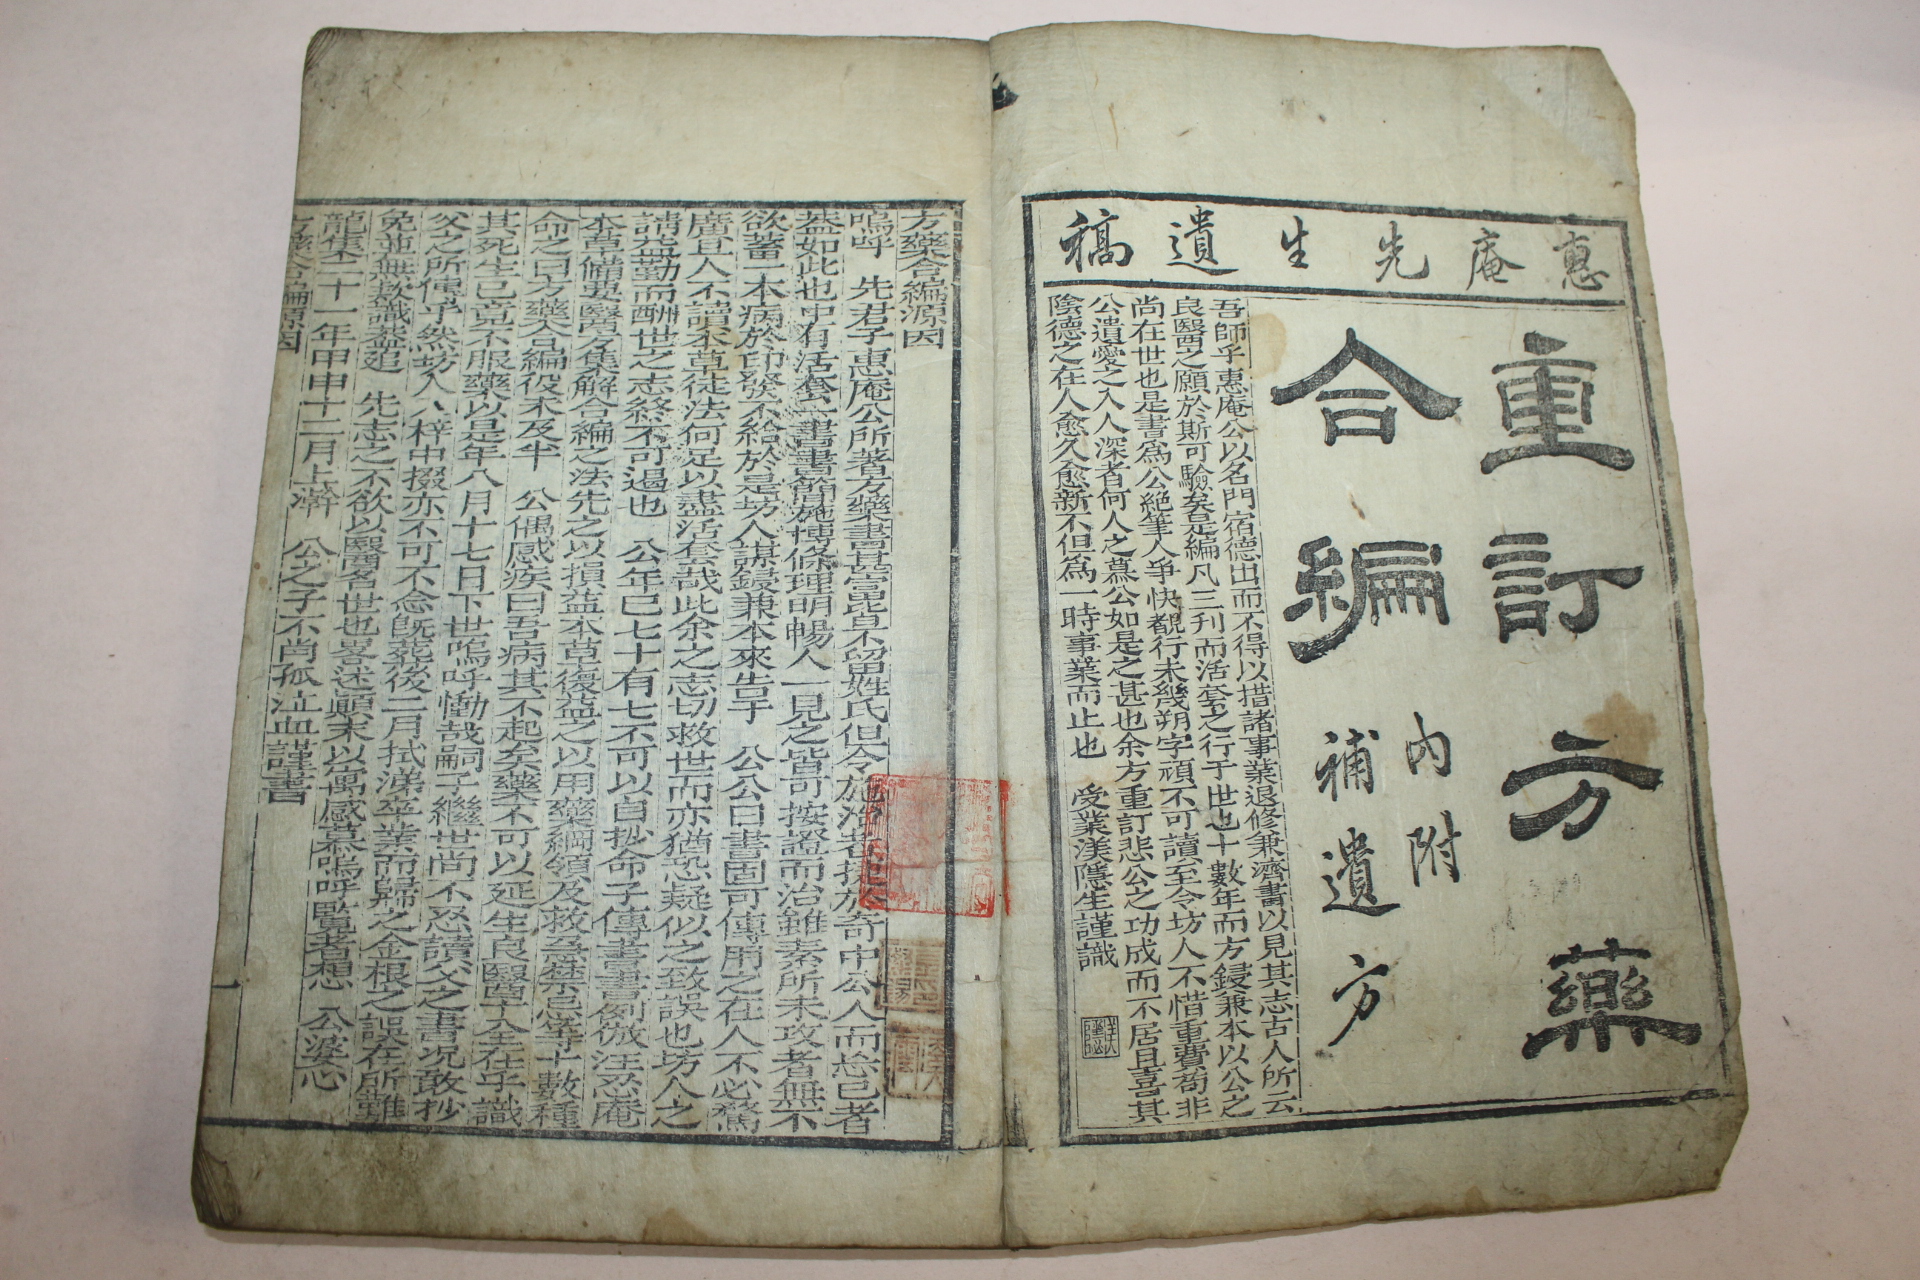 惠庵先生遺稿
重訂方藥
合編
內附
補遺方
吾師乎惠庵公以名門宿德出而不得以措諸事業退修兼濟書以見其志古人所云
良醫之願於斯可驗矣是編凡三刊而活套之行于世也十數年而方鋟兼本以公之
尚在世也是書爲公絶筆人爭快覩行未幾朔字頑不可讀至令坊人不惜重費苟非
公遺愛之入人深者何人之慕公如是之甚也余方重訂悲公之功成而不居且喜其
陰德之在人愈久愈新不但爲一時事業而止也 受業漢隱生謹識
方藥合編源因
嗚呼 先君子惠庵公所著方藥書甚當毘皁不留姓氏但令施治者挾於奇中公人而忘己者
蓋如此也中有活套一書書簡施博條理明暢人一見之皆可按證而治雖素所未攻者無不
欲蓄一本病於印發不給於是坊人謀鋟兼本來告于 公公曰書固可傳用之在人不必騖
廣且人不讀本草徒法何足以盡活套哉此余之志切救世而亦猶恐疑似之致誤也坊人之
請益勤而酬世之志終不可遏也 公年已七十有七不可以自抄命子傳書書例倣汪忍庵
本草備要醫方集解合編之法先之以損益本草復益之以用藥綱領及救急禁忌等十數種
命之曰方藥合編役未及半 公偶感疾曰吾病其不起矣藥不可以延生良醫十全在乎識
其死生已竟不服藥以是年八月十七日下世嗚呼慟哉嗣子繼世尚不忍讀父之書况敢抄
父之所傳乎然坊人入梓中掇亦不可不念旣葬後二月拭涕卒業而歸之金根之誤在所難
免並無款識蓋追 先志之不欲以醫名世也畧述顚末以寓感慕嗚呼覽者想 公婆心
龍集二十一年甲申十二月上澣 公之子不肖孤泣血謹書
方藥合編源因
一